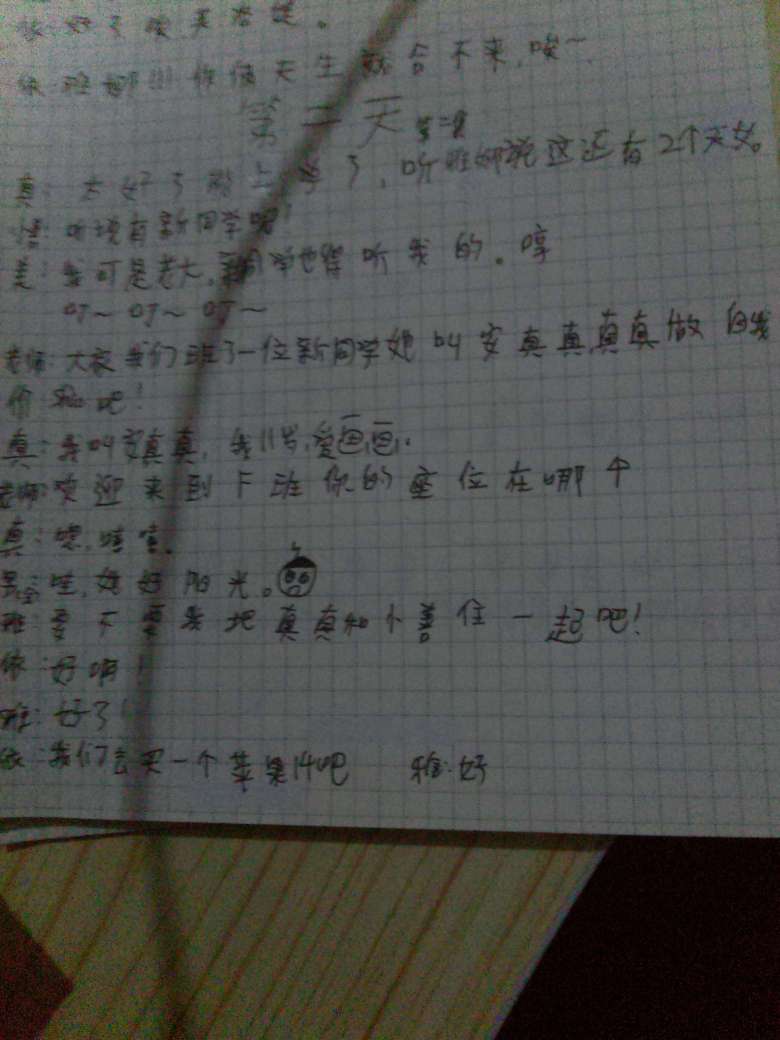 依:好了
依:班娜!!!你俩天生就合不来,唉~
第二天
真:太好了 上学了,听班娜说这还有2个天女。
洁:听说有新同学呢!
美:我可是老大,新同学也得听我的。哼
叮~叮~叮~
老师:大家我们班了一位新同学她叫安真真,真真做自我
介绍吧!
真:我叫安真真,我11岁,爱画画.
老师:欢迎来到F班你的座位在哪个
真:嗯,
哇,她好阳光。
班:要不要我把真真和小善住一起吧!
依:好啊!
班:好了!
依:我们去买一个苹果14吧 雅:好